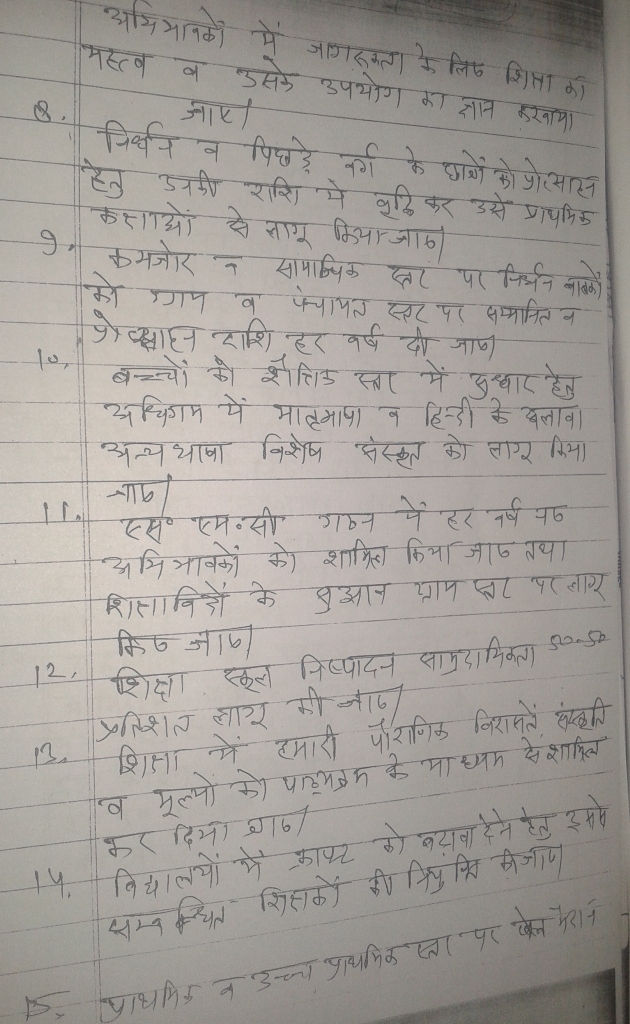 अभिभावकों में जागरूकता के लिए शिक्षा की
महत्व व उसके उपयोग का ज्ञान करवाया
जाए।
8. निर्धन व पिछड़े वर्ग के छात्रों को प्रोत्साहन
हेतु उनकी राशि में वृद्धि कर उसे प्राथमिक
कक्षाओं से लागू किया जाए।
9. कमजोर व सामाजिक स्तर पर निर्धन बालकों
को ग्राम व पंचायत स्तर पर सम्मानित व
प्रोत्साहन राशि हर वर्ष दी जाए।
10. बच्चों को शैक्षिक स्तर में सुधार हेतु
अधिगम में मातृभाषा व हिन्दी के अलावा
अन्य भाषा विशेष संस्कृत को लागू किया
जाए।
11. एस॰ एम॰ सी गठन में हर वर्ष नए
अभिभावकों को शामिल किया जाए तथा
शिक्षाविदों के सुझाव ग्राम स्तर पर लागू
किए जाए।
12. शिक्षा स्कूल निष्पादन सामुदायिकता 50-50
प्रतिशत लागू की जाए।
13. शिक्षा में हमारी पौराणिक विरासतें, संस्कृति
व मूल्यों को पाठ्यक्रम के माध्यम से शामिल
कर दिया जाए।
14. विद्यालयों में क्राफ्ट को बढ़ावा देने हेतु इससे
सम्बन्धित शिक्षकों की नियुक्ति की जाए।
15. प्राथमिक व उच्च प्राथमिक स्तर पर खेल मैदान